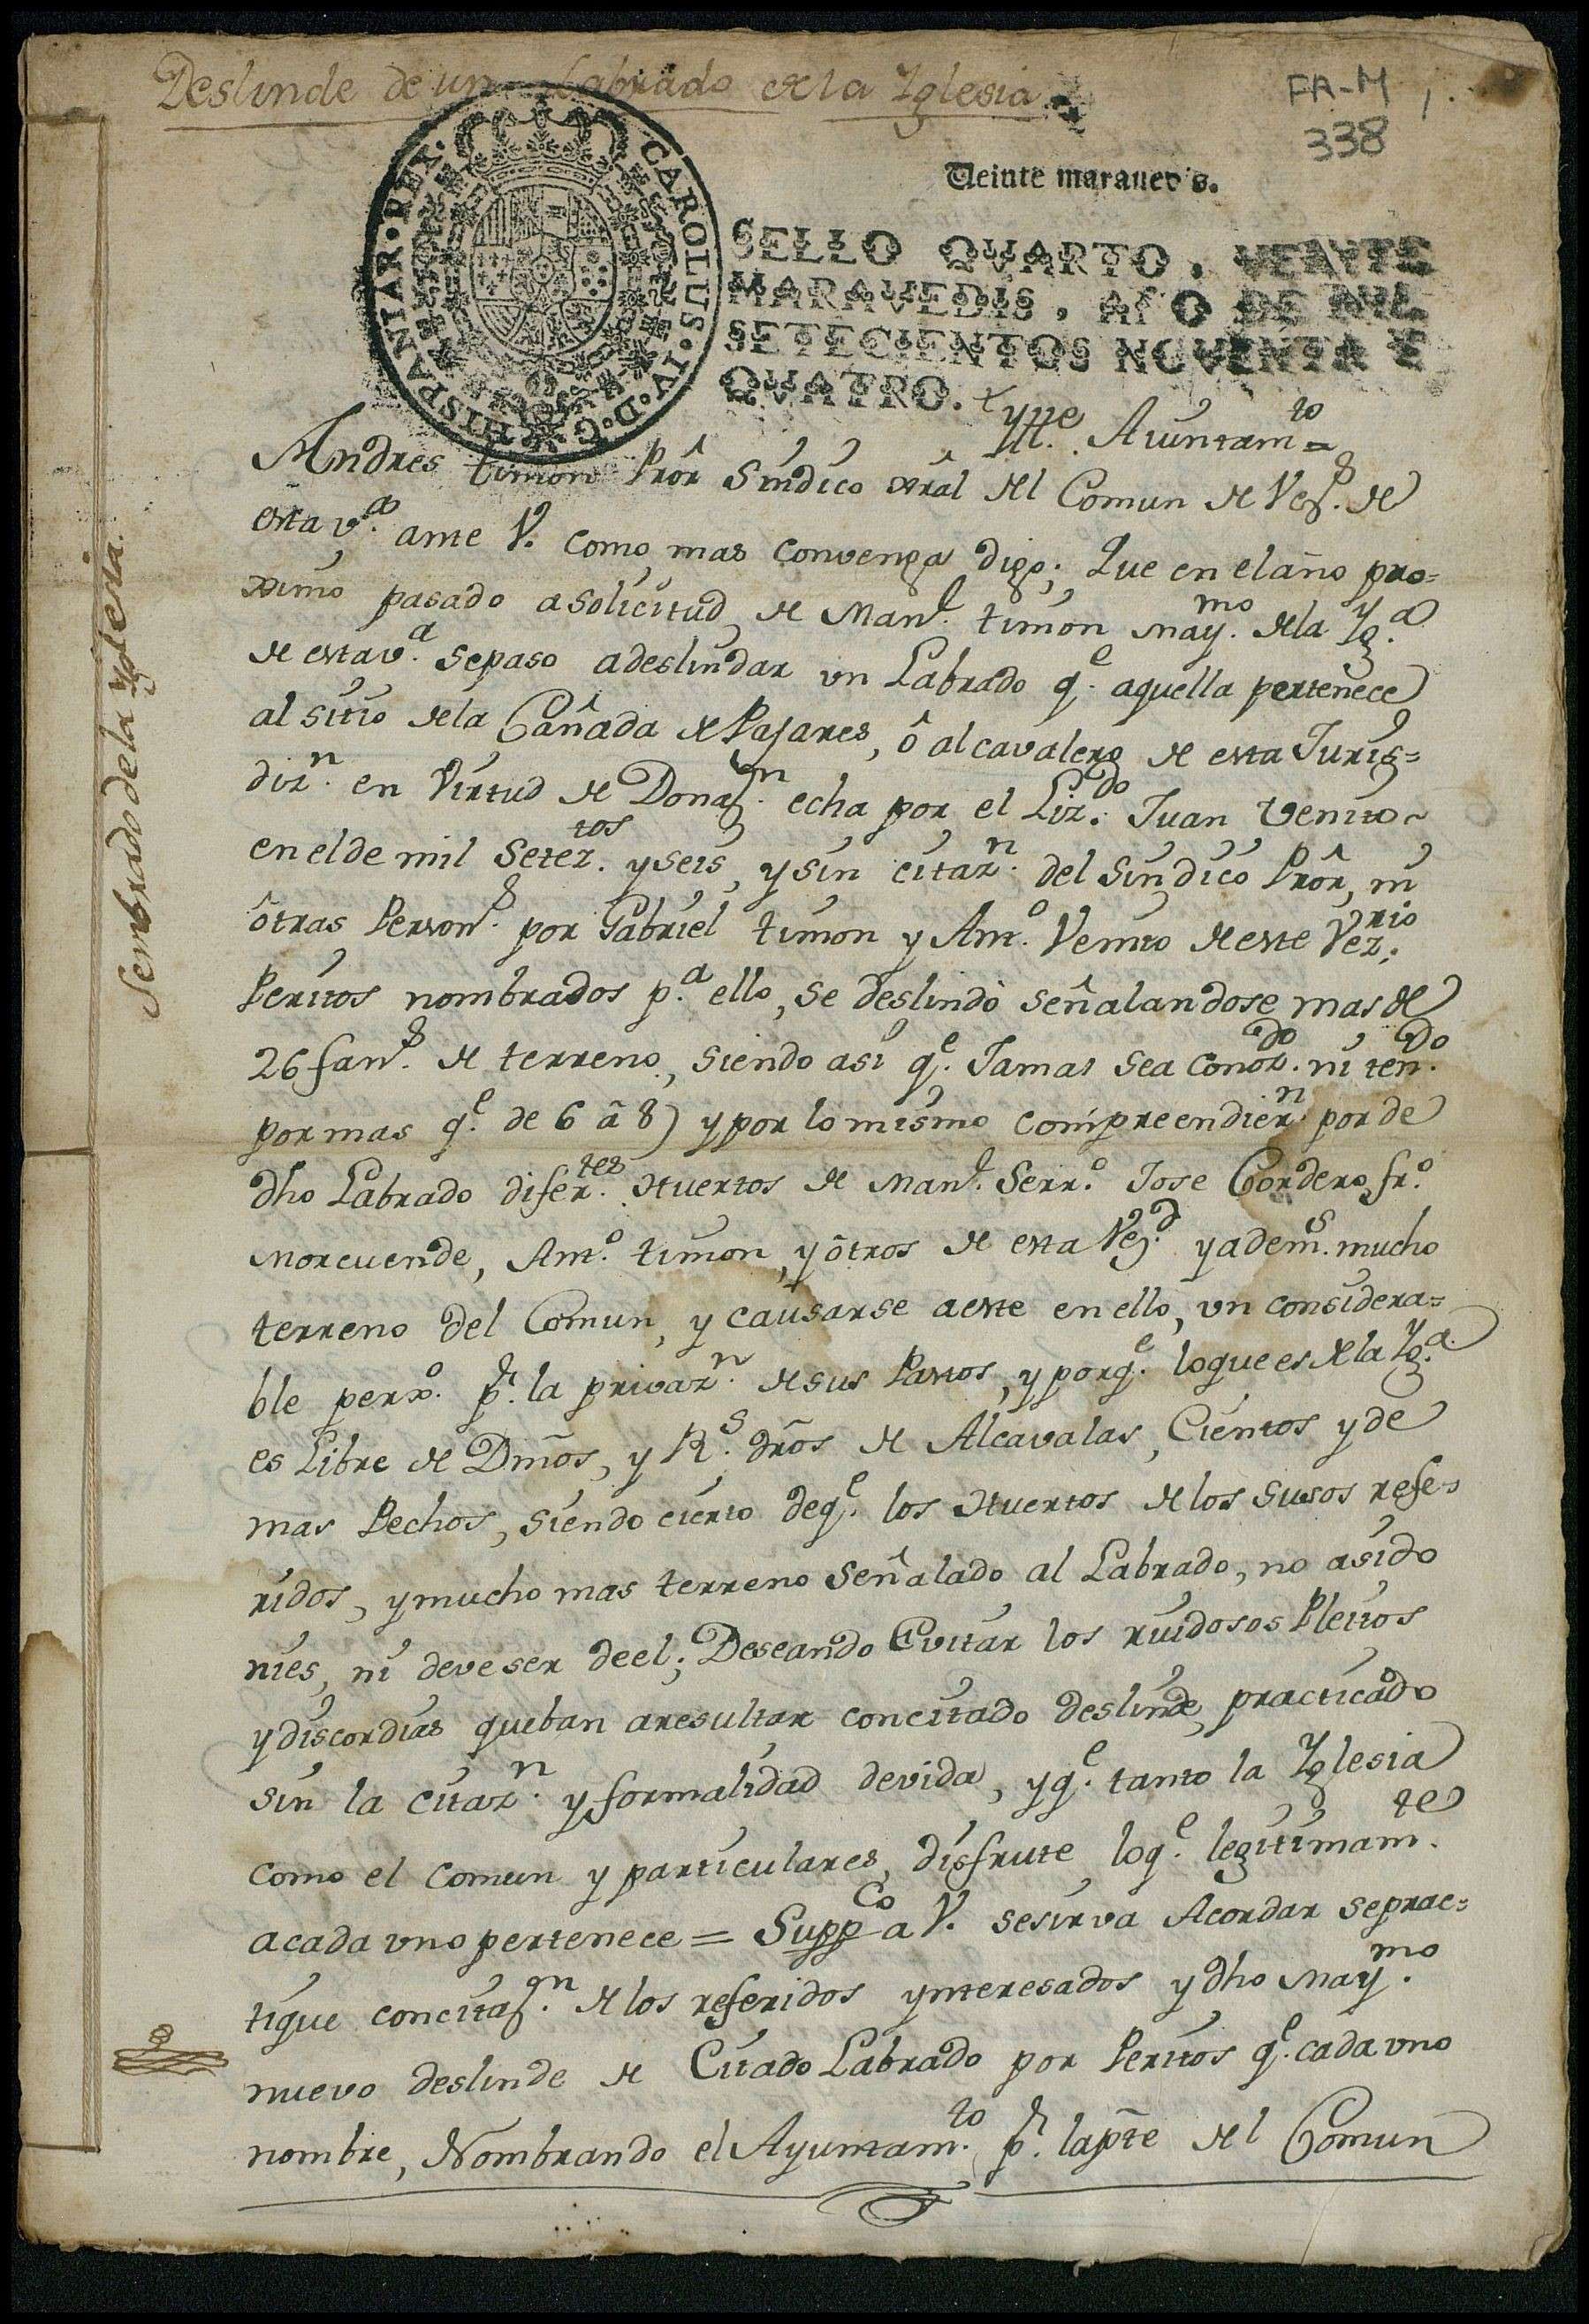 Deslinde de un Labrado de la Yglesia
FA-M
338
Veinte maravedis.
CAROLUS·IV·D·G·HISPANIAR·REX·
SELLO QVARTO, VEINTE
MARAVEDIS, AÑO DE MIL
SETECIENTOS NOVENTA Y
QVATRO.
Sembrado de la Yglesia.
Ytte. Aiuntamto =
Andres timon Prôr Sindico Gral del Comun de Vezs. de
esta va. ante V. como mas convenga digo; Que en el año pro=
ximo pasado a solicitud de Manl. timon Maymo. de la Yga.
de esta va. se paso a deslindar un Labrado qe. aquella pertenece
al sitio de la Cañada de Pajares, ô alcavalero de esta Juris=
dizn. en Virtud de Donazn. echa por el Lizdo. Juan Venito
en el de mil Seteztos. y seis, y sin citazn. del Sindico Prôr, ni
ôtras Persons. por Gabriel timon y Anto. Venito de este Vezrio;
Peritos nombrados pa. ello, se deslindò señalandose mas de
26 fans. de terreno, siendo asi qe. Jamas sea Conozdo. ni tendo.
por mas qe. de 6 â 8) y por lo mismo compreendiern. por de
dho Labrado diferrtes. Huertos de Manl. Serro. Jose Cordero, fro.
Morcuende, Anto. timon, y ôtros de esta Vezd. y adems. mucho
terreno del Comun, y causarse a este en ello, un considera=
ble perxo. pr. la privazn. de sus Pastos, y porqe. lo que es de la Yga.
es Libre de Dmos, y Rs. dros de Alcavalas, Cientos y de
mas Pechos, siendo cierto deqe. los Huertos de los susos refe=
ridos, y mucho mas terreno señalado al Labrado, no a sido
ni es, ni deve ser de el; Deseando Evitar los ruidosos Pleitos
y discordias que ban a resultar con citado deslinde, practicado
sin la citazn. y formalidad devida, y qe. tanto la Yglesia
como el comun y particulares, disfrute loqe. legitimamte.
a cada uno pertenece = Suppco a V. se sirva Acordar se prac=
tique con citazn. de los referidos ynteresados y dho Maymo.
nuevo deslinde de Citado Labrado por Peritos qe. cada uno
nombre, Nombrando el Ayuntamto. pr. la pte del Comun